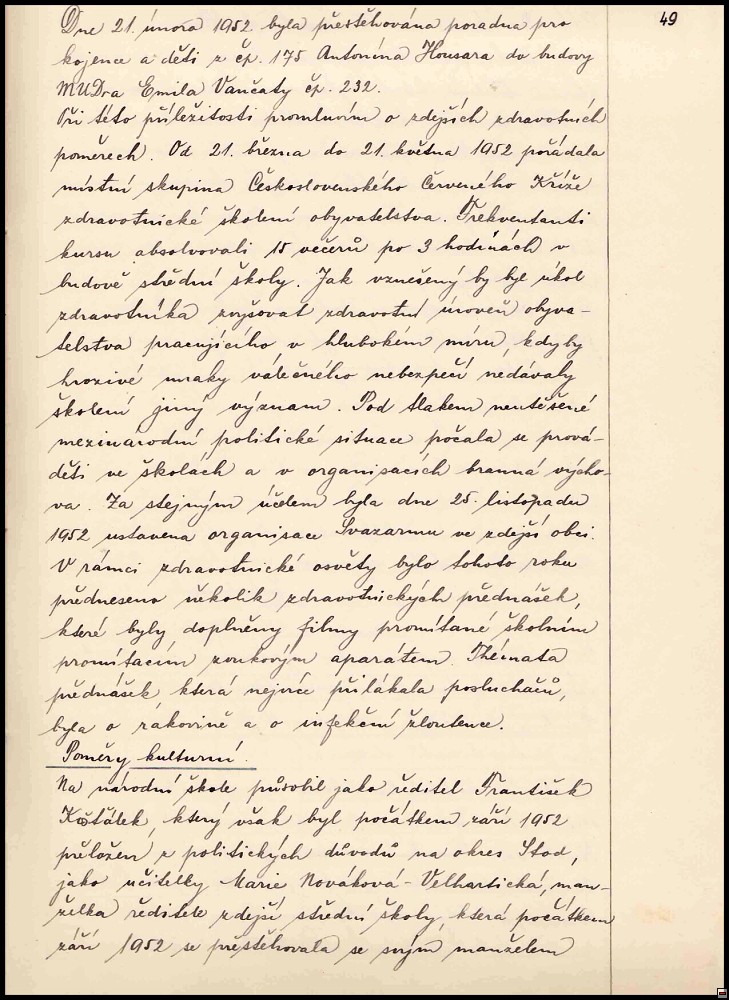 49
Dne 21. února 1952 byla přestěhována poradna pro
kojence a děti z čp. 175 Antonína Housara do budovy
MUDra Emila Vančaty čp. 232.
Při této příležitosti promluvím o zdejších zdravotních
poměrech. Od 21. března do 21. května 1952 pořádala
místní skupina Československého Červeného Kříže
zdravotnické školení obyvatelstva. Frekventanti
kursu absolvovali 15 večerů po 3 hodinách v
budově střední školy. Jak vznešený by byl úkol
zdravotníka zvyšovat zdravotní úroveň obyva-
telstva pracujícího v hlubokém míru, kdyby
hrozivé mraky válečného nebezpečí nedávaly
školení jiný význam. Pod tlakem neutěšené
mezinárodní politické situace počala se prová-
děti ve školách a v organisacích branná výcho-
va. Za stejným účelem byla dne 25. listopadu
1952 ustavena organisace Svazarmu ve zdejší obci.
V rámci zdravotnické osvěty bylo tohoto roku
předneseno několik zdravotnických přednášek,
které byly doplněny filmy promítané školním
promítacím zvukovým aparátem. Thémata
přednášek, která nejvíce přilákala posluchačů,
byla o rakovině a o infekční žloutence.
Poměry kulturní.
Na národní škole působil jako ředitel František
Košťálek, který však byl počátkem září 1952
přeložen z politických důvodů na okres Stod,
jako učitelky Marie Nováková - Velhartická, man-
želka ředitele zdejší střední školy, která počátkem
září 1952 se přestěhovala se svým manželem